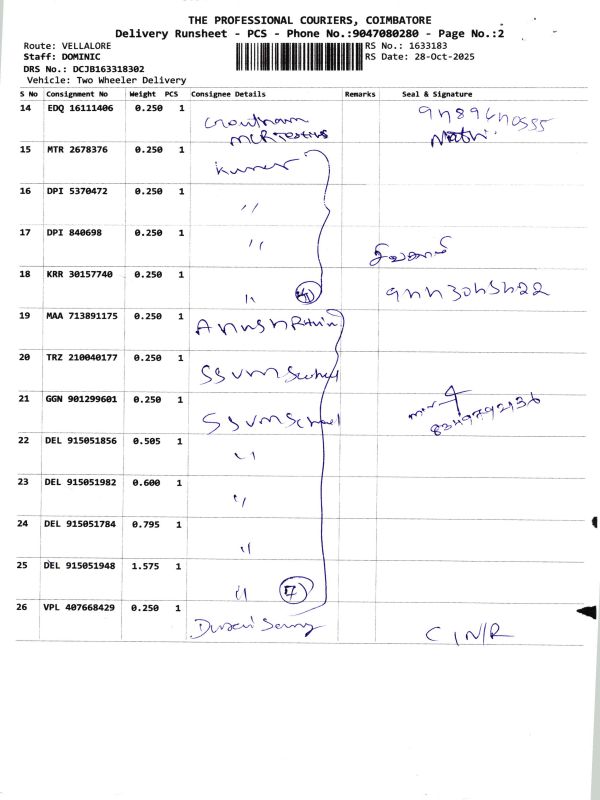 THE PROFESSIONAL COURIERS, COIMBATORE
Delivery Runsheet - PCS - Phone No.:9047080280 - Page No.:2
Route: VELLALORE RS No.: 1633183
Staff: DOMINIC RS Date: 28-Oct-2025
DRS No.: DCJB163318302
Vehicle: Two Wheeler Delivery
S No Consignment No Weight PCS Consignee Details Remarks Seal & Signature
14 EDQ 16111406 0.250 1
15 MTR 2678376 0.250 1 Kumar
16 DPI 5370472 0.250 1 〃
17 DPI 840698 0.250 1 〃
18 KRR 30157740 0.250 1 〃 4
19 MAA 713891175 0.250 1
20 TRZ 210040177 0.250 1 SSVM School
21 GGN 901299601 0.250 1 SSVM School
8349792136
22 DEL 915051856 0.505 1 〃
23 DEL 915051982 0.600 1 〃
24 DEL 915051784 0.795 1 〃
25 DEL 915051948 1.575 1 〃 7
26 VPL 407668429 0.250 1 C/N/R